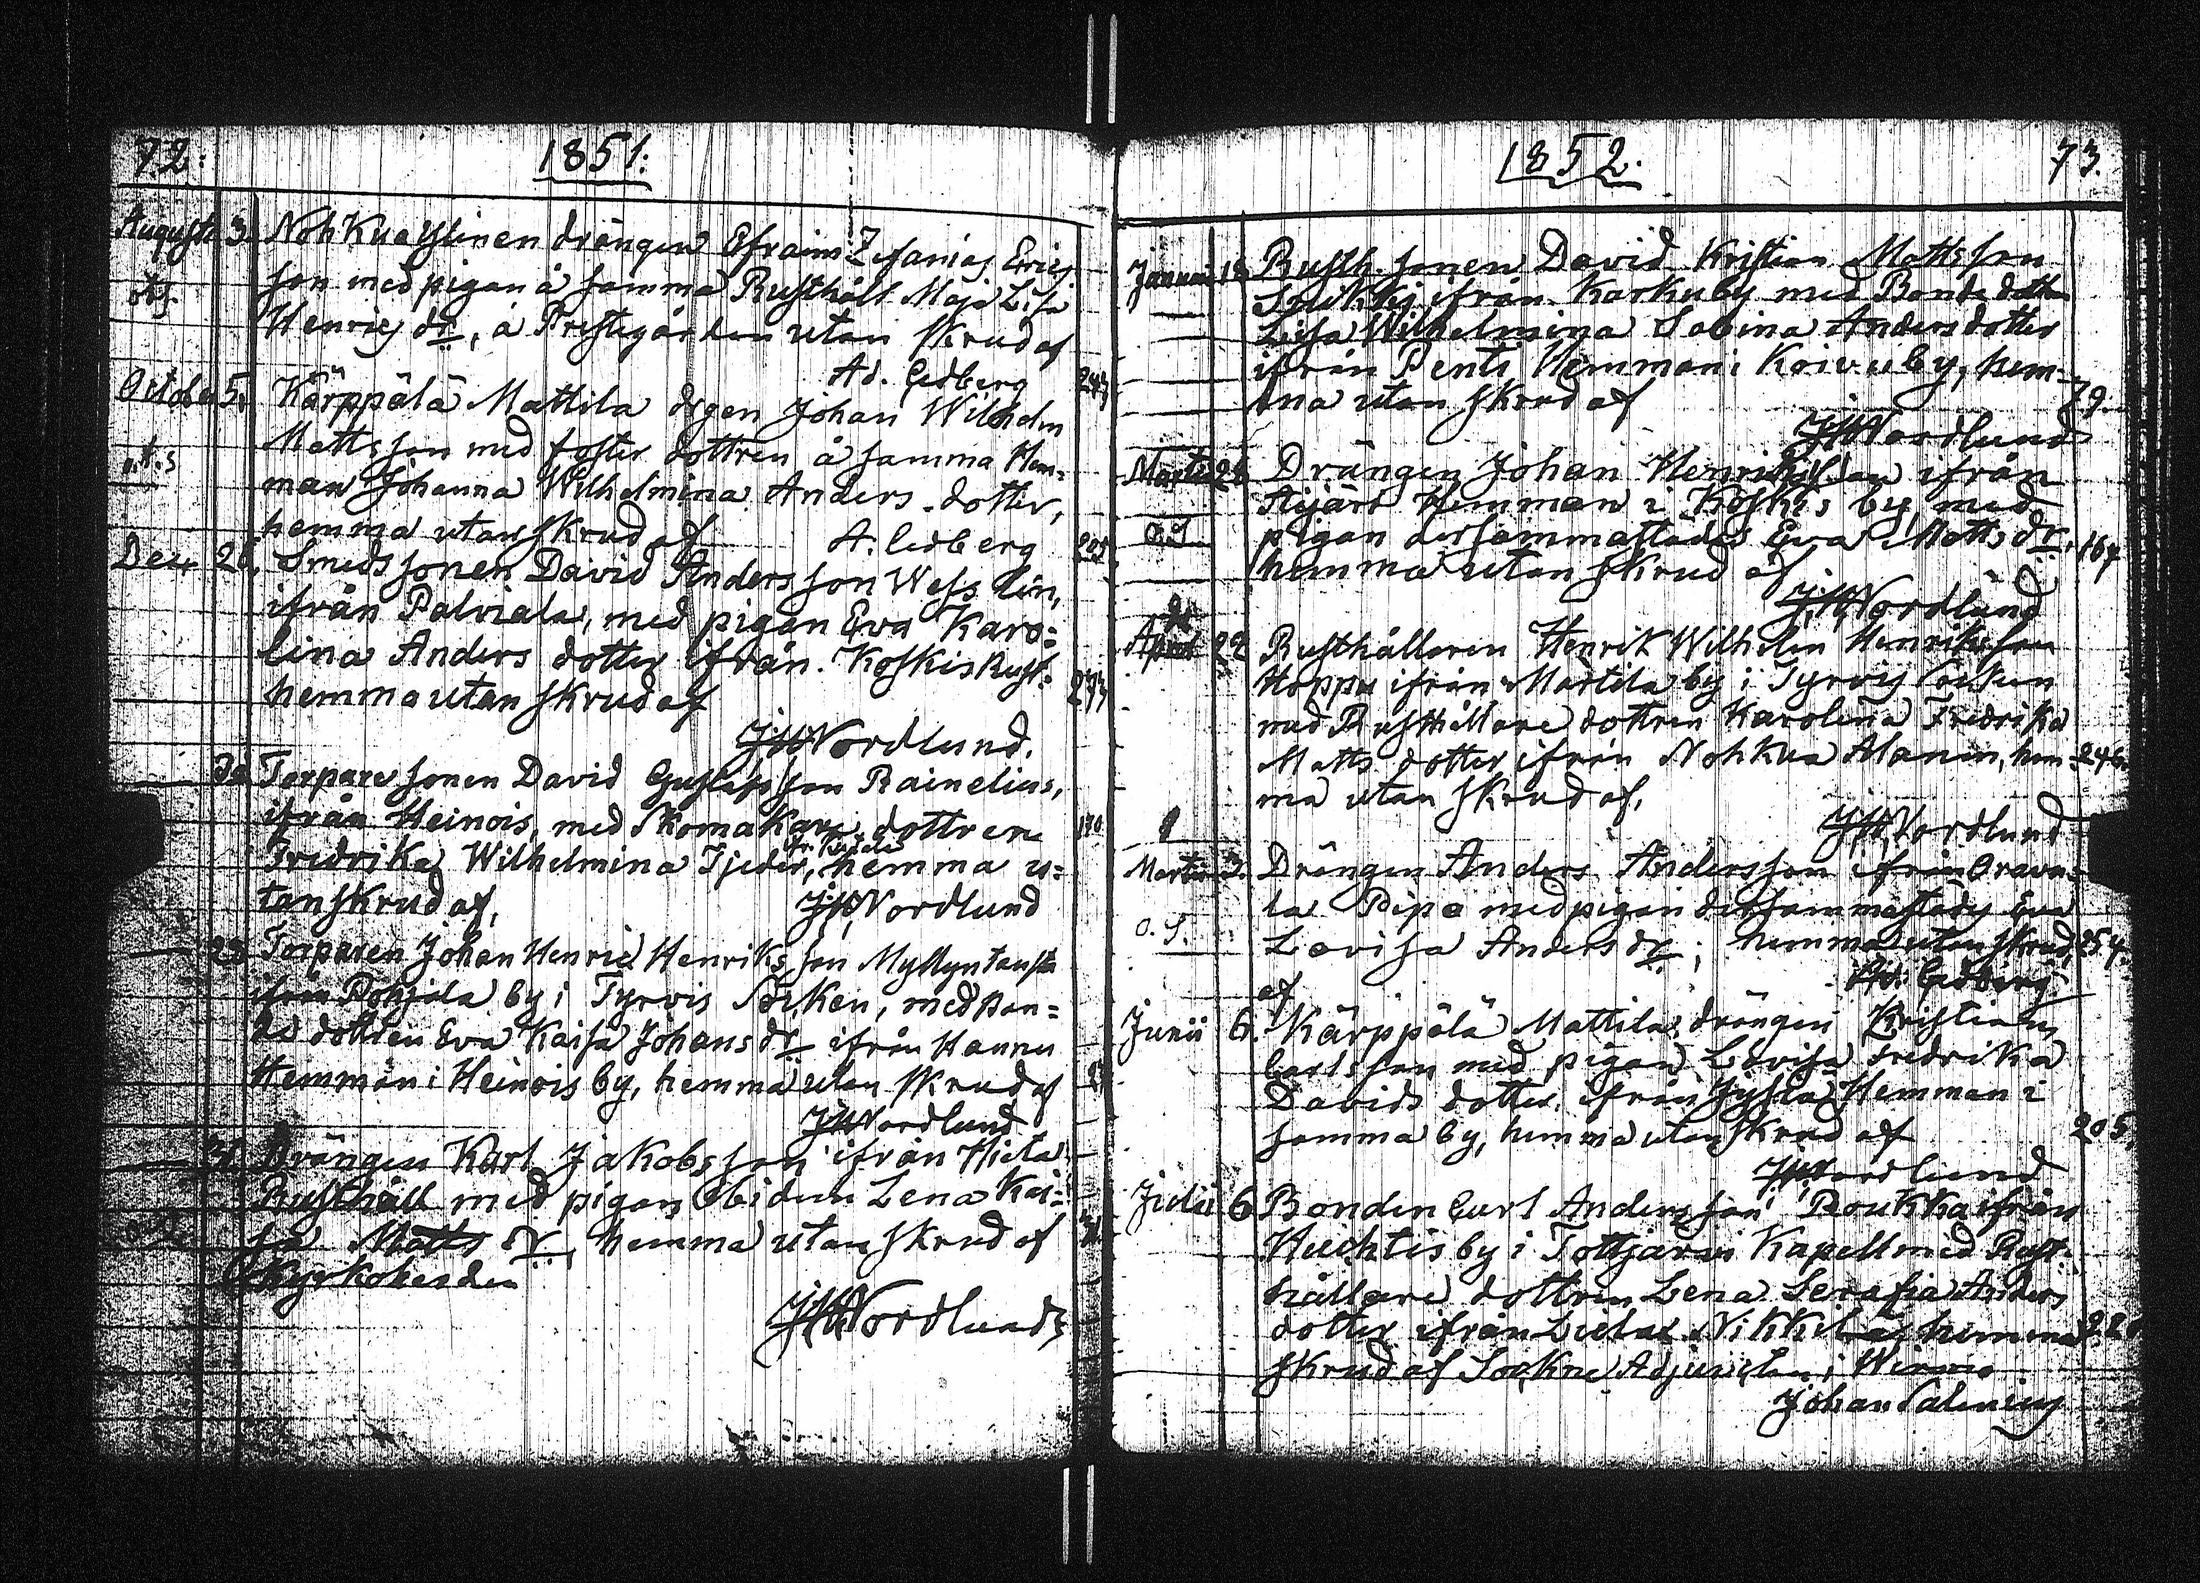 72.
1851.
Augusti 3. Nohkua Ylinen drängen Efraim Zefanias Erics
son med pigan å samma Rusthåll Maja Lisa
Henrics dr, å Prestegården utan skrud af
Ad. Cedberg
October 5. Kärppälä Mattila drgen Johan Wilhelm
Mattsson med foster dottren å samma Hem-
man Johanna Wilhelmina Anders dotter,
hemma utan skrud af A. Cedberg 205
Dec. 26. Smeds sonen David Andersson Wesslin,
ifrån Palviala, med pigan Eva Karo=
lina Anders dotter ifrån Koskis Rust:
hemma utan skrud af
JHNordlund.
Torpare sonen David Gustafsson Rainelius,
ifrån Heinois, med Skomakare dottren
Fredrika Wilhelmina Tjeder, hemma u=
tan skrud af,
JHNordlund
28 Torparen Johan Henric Henriksson Myllyntausta
ifrån Pohjala by i Tyrvis Socken, med Bon=
de dottren Eva Kaisa Johans dr ifrån Hannu
Hemman i Heinois by, hemma utan skrud af
JHNordlund
Drängen Karl Jakobsson ifrån Hieta
Rusthåll med pigan ibidem Lena Kai=
sa Matts dr, hemma utan skrud af
Kyrkoherden
JHNordlund
1852.
73.
Januari 18 Rusth. sonen David Kristian Mattsson
ifrån Karkuby med Bonde dottren
Lisa Wilhelmina Sabina Anders dotter
ifrån Penti Hemman i Koivuby, hem-
ma utan skrud af 79.
JHNordlund
Martii 28 Drängen Johan Henriksson ifrån
Äijärt Hemman i Koskis by, med
pigan dersammastädes Eva Matts dr, 167
hemma utan skrud af
JHNordlund
April 22 Rusthållaren Henrik Wilhelm Henriksson
Hoppu ifrån Martila by i Tyrvis Socken
med Rusthållare dottren Karolina Fredrika
Matts dotter ifrån Nohkua Alanen, hem= 246.
ma utan skrud af,
JHNordlund
Martii 3. Drängen Anders Andersson ifrån Orava=
la Pipo med pigan dersammastädes Eva
o. S. Lovisa Anders dr; hemma utan skrud, 254.
af Ad. Cedberg
Junii 6. Kärppälä Mattila drängen Kristian
Carlsson med pigan Lovisa Fredrika
Davids dotter ifrån Hemman i
samma by, hemma utan skrud af 205.
JHNordlund
Julii 6 Bonden Carl Andersson Roukka ifrån
Huchtis by i Tottjärvi Kapell med Rust-
hållare dottren Lena Serafia Anders
dotter ifrån Nikkilä, hemma
skrud af Sockne Adjuncten i
Johan Salenius